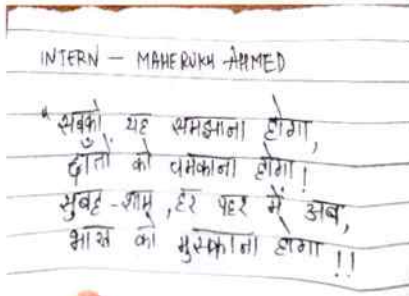 INTERN – MAHERUKH AHMED
"सबको यह समझाना होगा,
दाँतों को चमकाना होगा!
सुबह-शाम, हर पहर में अब,
भारत को मुस्काना होगा !!